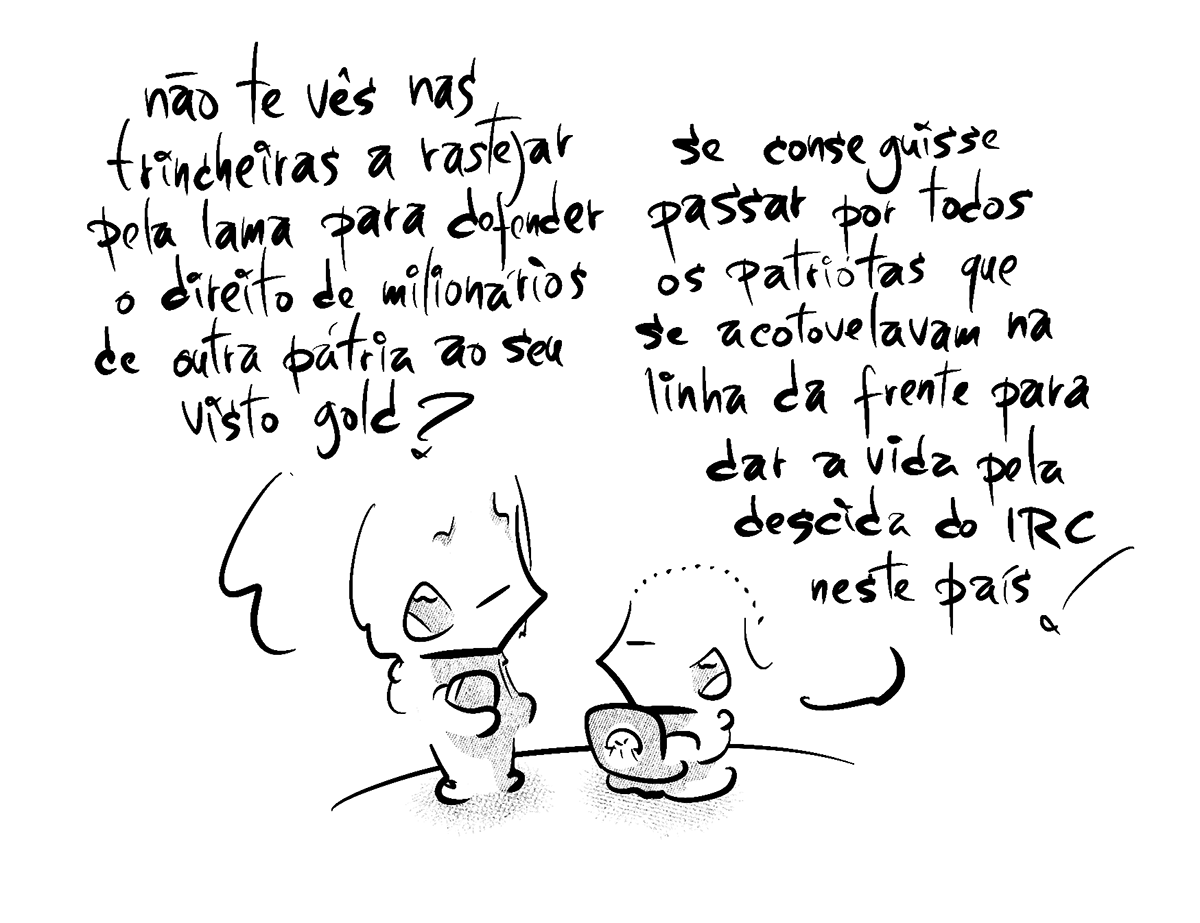 não te vês nas
trincheiras a rastejar
pela lama para defender
o direito de milionários
de outra pátria ao seu
visto gold?
se conseguisse
passar por todos
os patriotas que
se acotovelavam na
linha da frente para
dar a vida pela
descida do IRC
neste país!